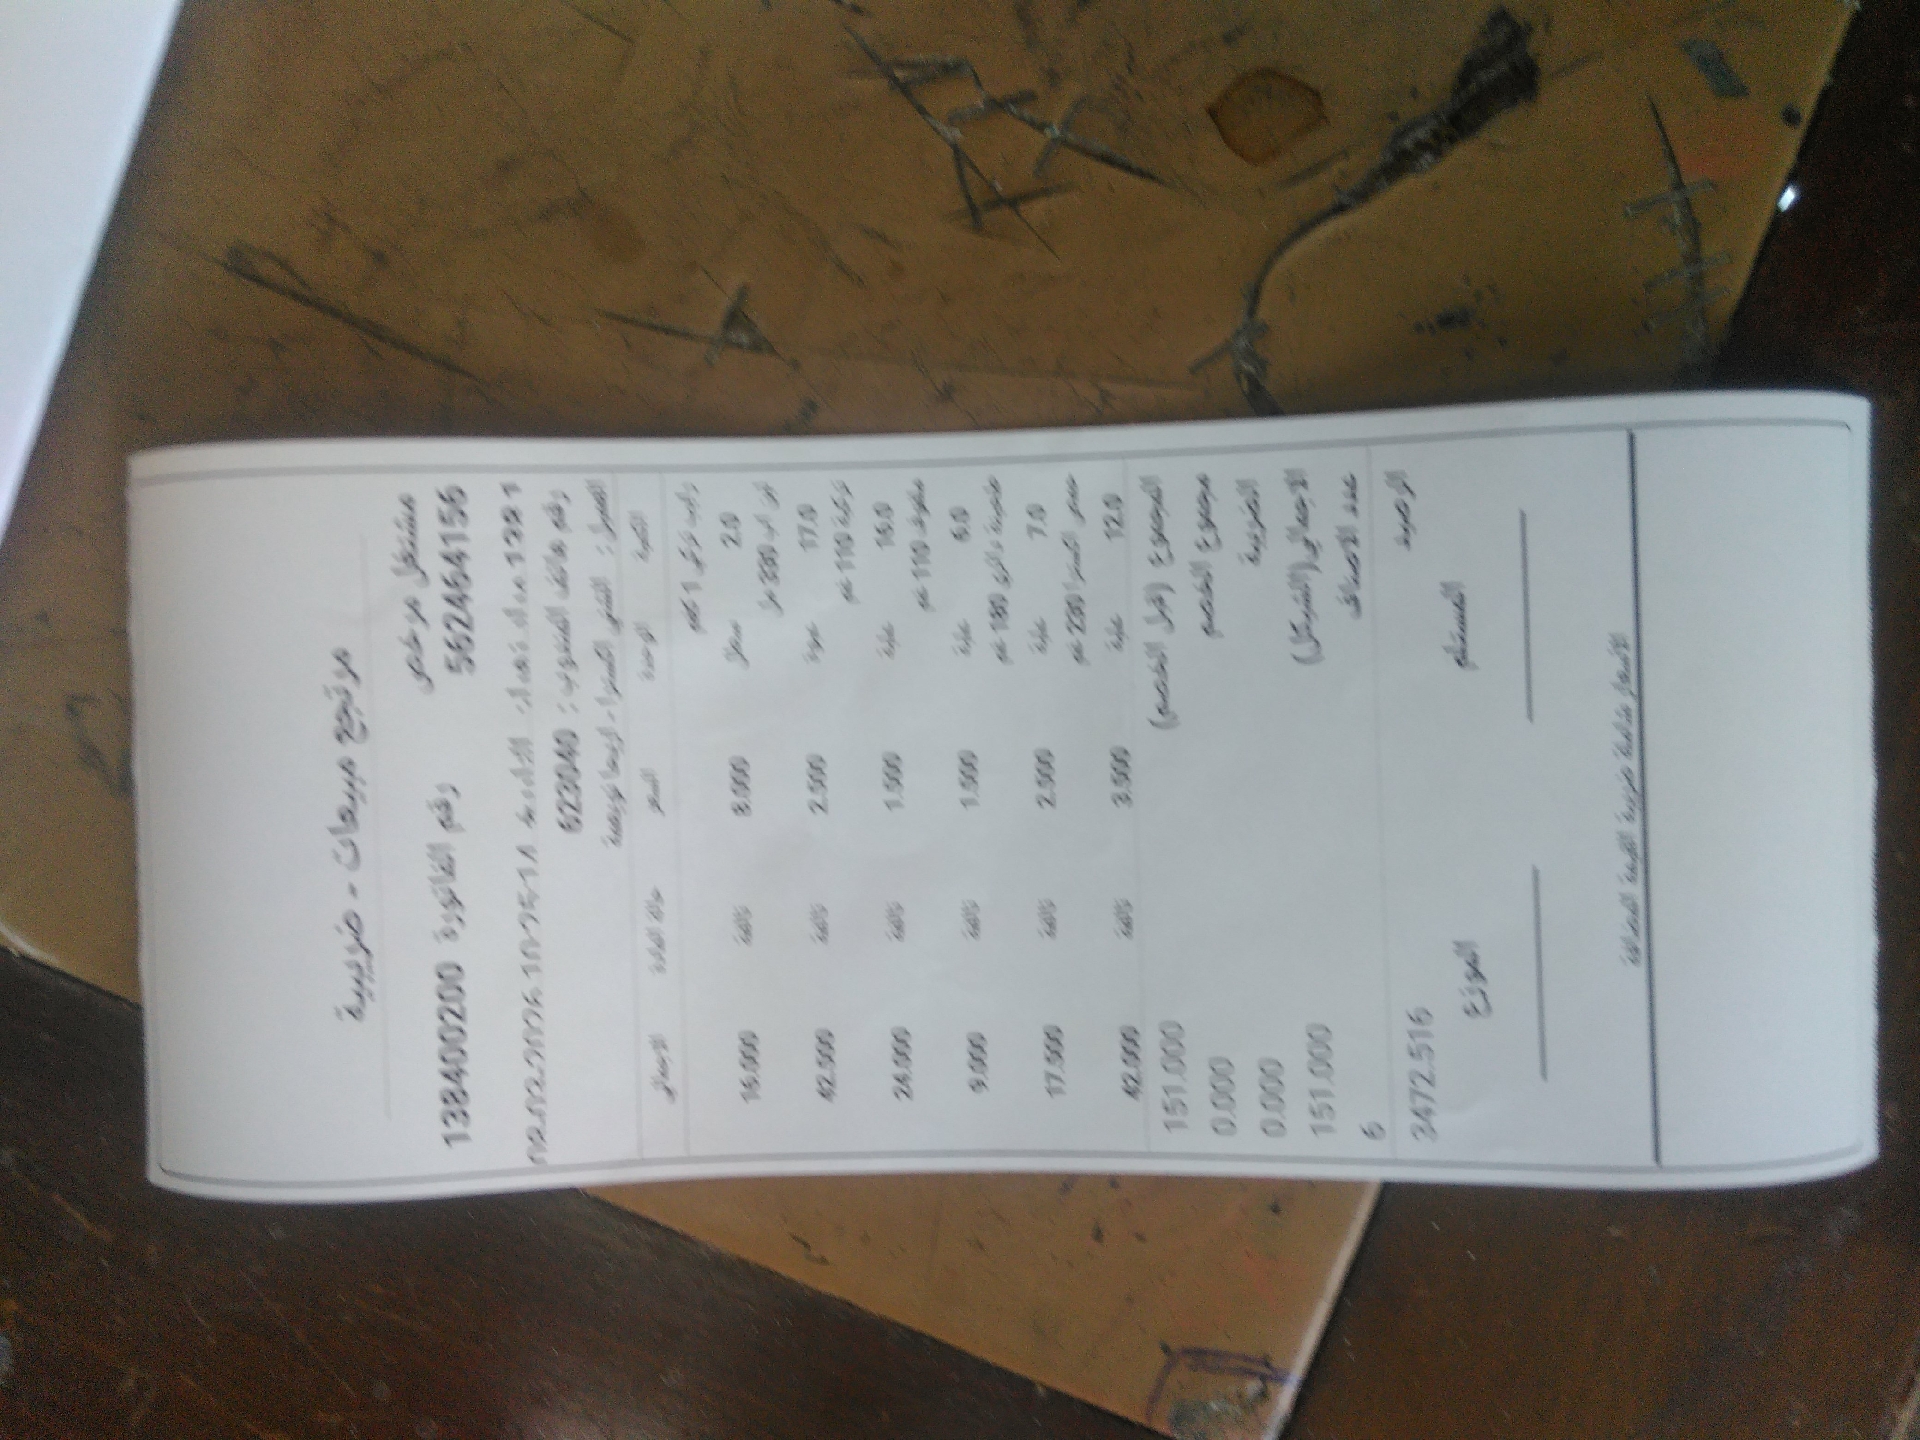 مرتجع مبيعات - ضريبية
مشتغل مرخص
562464156 رقم الفاتورة 138400200
رقم هاتف المندوب: 623040
الكمية الوحدة السعر حالة المادة الاجمالي
رايب تركي 1 كغم
2.0 سطل 8.000 تالفة 16.000
لبن اب 330 مل
17.0 عبوة 2.500 تالفة 42.500
تركية 110 غم
16.0 علبة 1.500 تالفة 24.000
متلوف 110 غم
6.0 علبة 1.500 تالفة 9.000
180 غم
7.0 علبة 2.500 تالفة 17.500
حمص اكسترا 230 غم
12.0 علبة 3.500 تالفة 42.000
المجموع (قبل الخصم) 151.000
مجموع الخصم 0.000
الضريبة 0.000
الاجمالي(الشيكل) 151.000
عدد الاصناف 6
الرصيد 3472.516
المستلم الموزع
الأسعار شاملة ضريبة القيمة المضافة